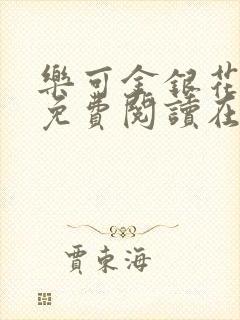 樂可金銀花
免費閱讀在
賈東海